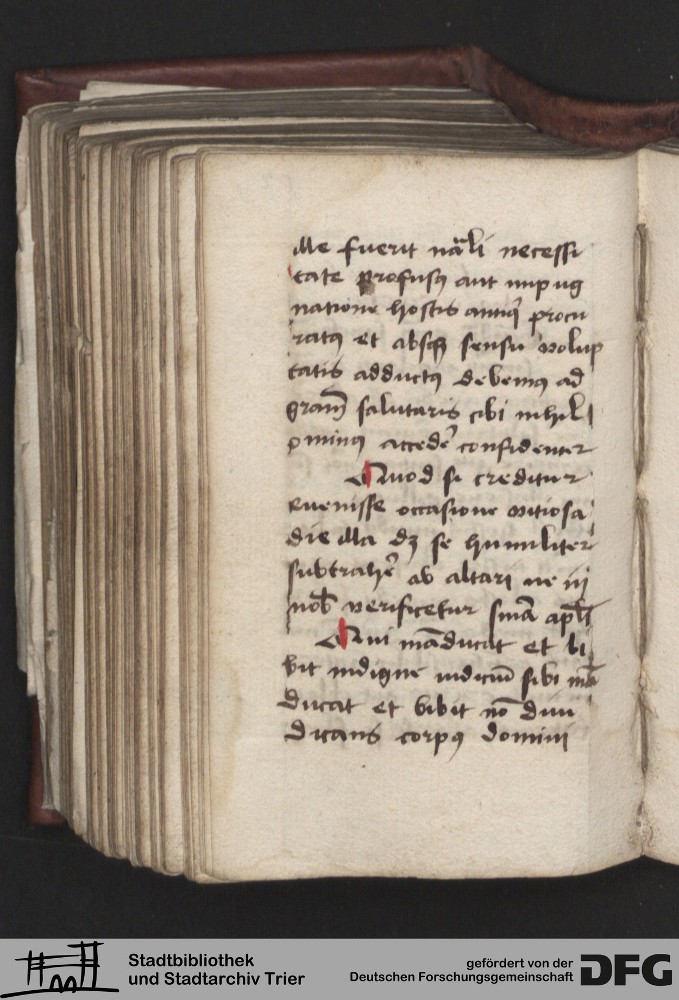 ille fuerit nāli necessi
tate profusꝰ aut impug
natione hostis antiq̄ procu
ratꝰ et absqꝫ sensu volup
tatis adductꝰ debemꝰ ad
grām salutaris cibi nihil
ominꝰ accedē confidenter
Quod si creditur
euenisse occasione vitiosa
die illa dꝫ se humiliter
subtrahē ab altari ne in
nob̄ verificetur sn̄ia apl̄i
Qui māducat et bi
bit indigne iudiciū sibi mā
ducat et bibit nō diiu
dicans corpꝰ domini
Stadtbibliothek
und Stadtarchiv Trier
gefördert von der
Deutschen Forschungsgemeinschaft
DFG